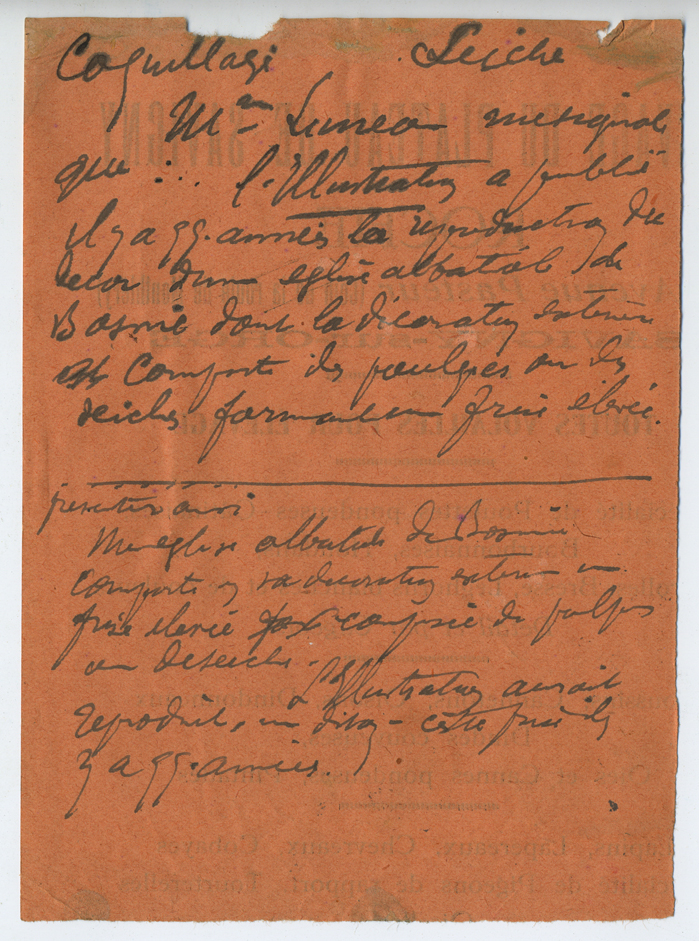 Coquillage Seiche
Mme Luneau me signale
que : .. l'Illustration a publié
il y a qq. années la reproduction du
decor d'une eglise abbatiale de
Bosnie dont la décoration exterieure
comporte des poulpes ou des
seiches formant une frise elevée.
presenter ainsi
Une eglise abbatiale de Bosnie
comporte en sa decoration exterieure une
frise elevée composée de poulpes
ou de seiches.
L'Illustration aurait
reproduit, me dit-on - cette frise il
y a qq. années.